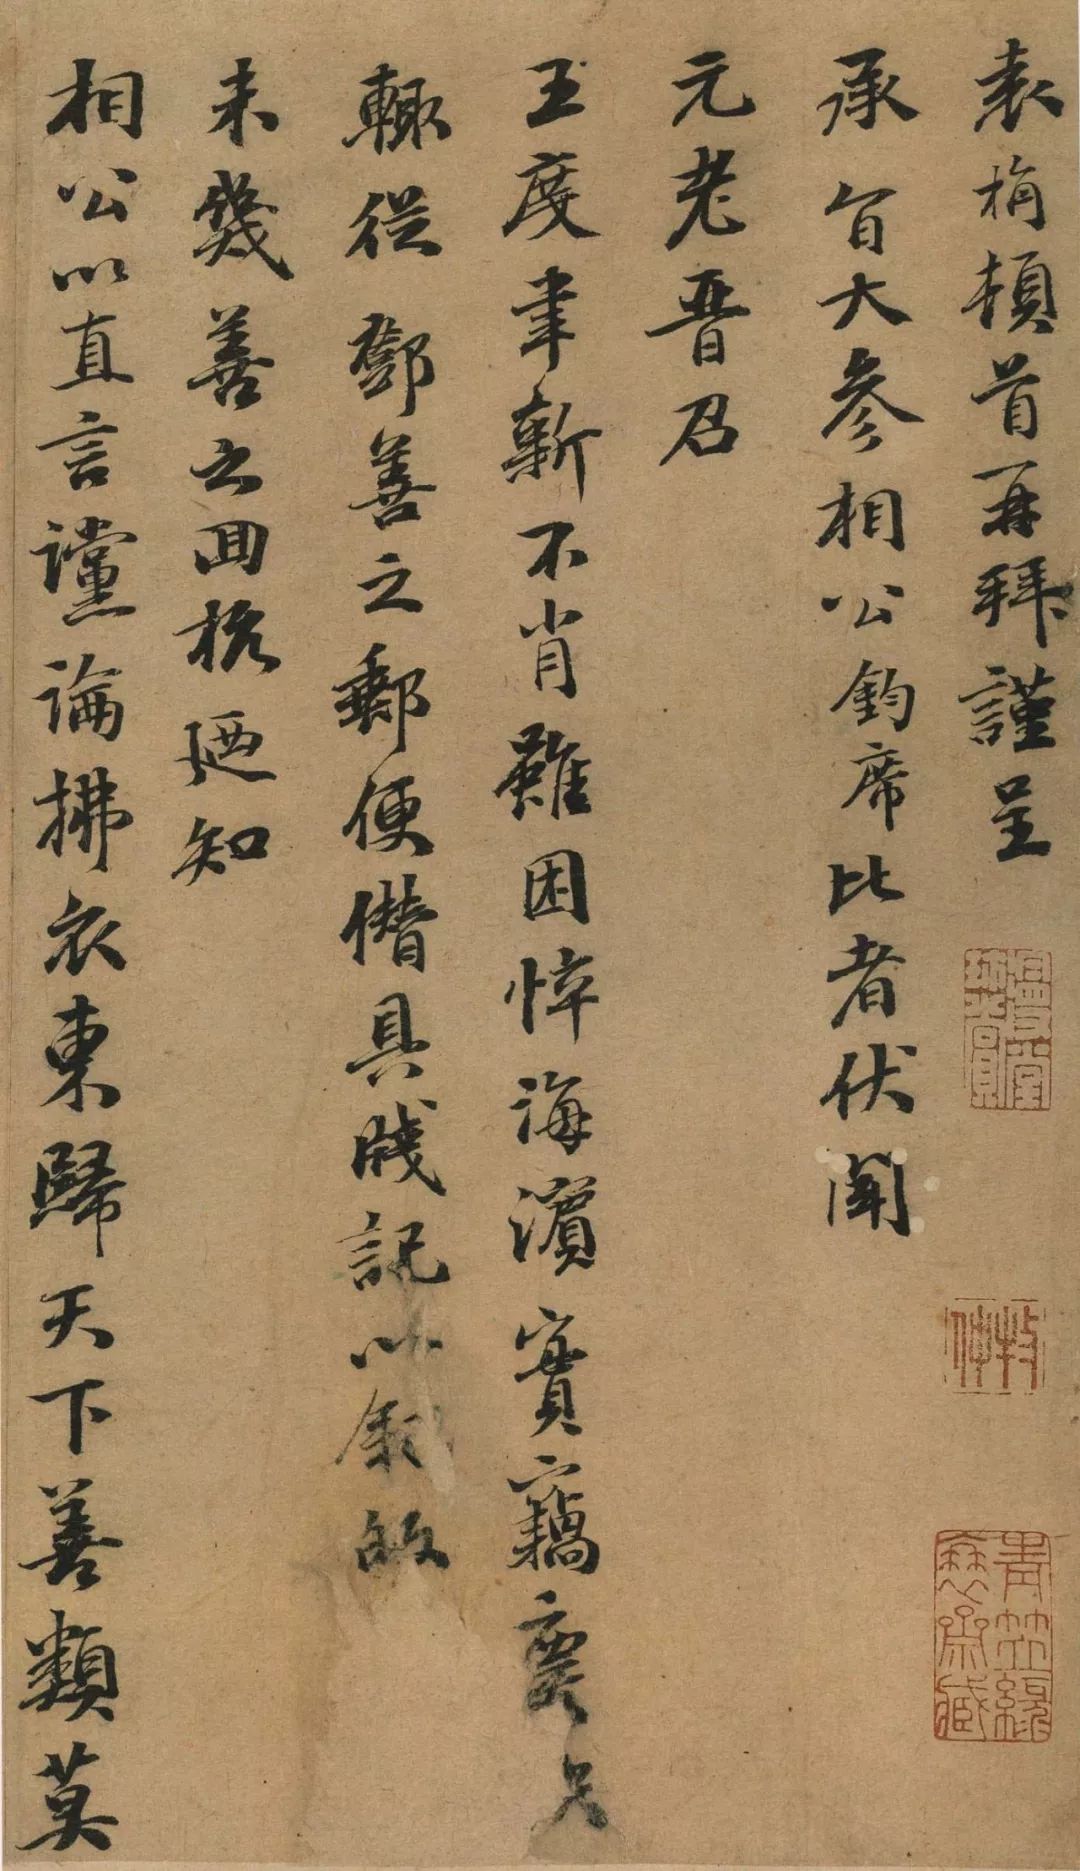 袁桷頓首再拜謹呈
承旨大參相公鈞席比者伏聞
元老晋召
王度聿新不肖雖困悴海濱實竊
輒從鄧善之郵便僭具牋記以
未幾善之回杭廼知
相公以直言讜論拂衣東歸天下善類莫